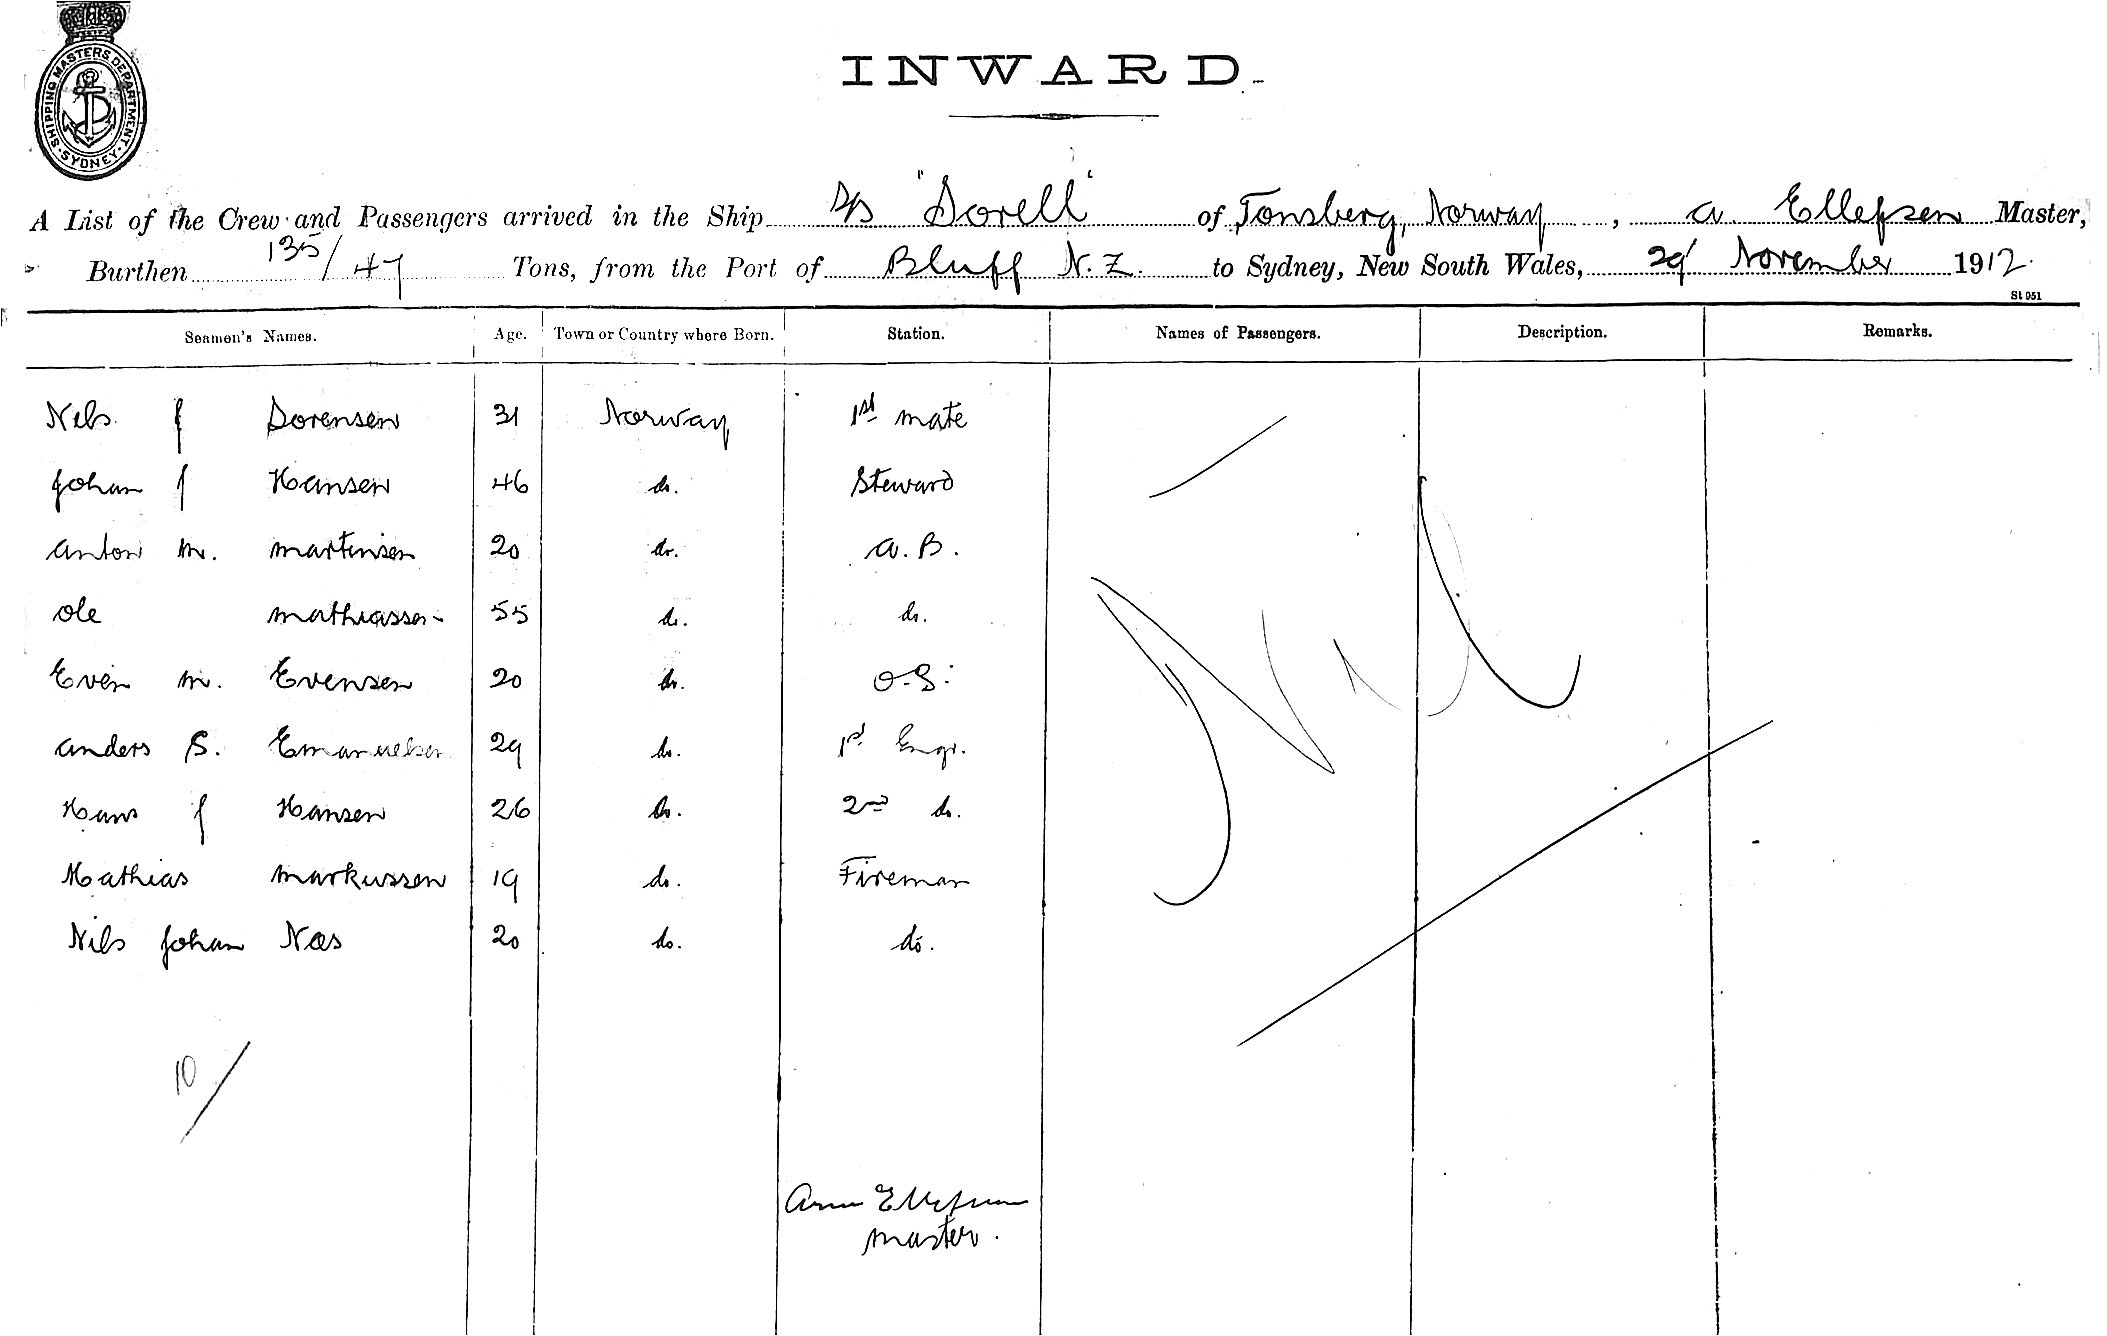 SHIPPING MASTERS DEPARTMENT · SYDNEY ·
INWARD.
A List of the Crew and Passengers arrived in the Ship S/S "Sorell" of Tonsberg, Norway, A. Ellefsen Master,
Burthen 135/47 Tons, from the Port of Bluff N.Z. to Sydney, New South Wales, 29 November 1912.
St 951
Seamen's Names. Age. Town or Country where Born. Station. Names of Passengers. Description. Remarks.
Nils J Sorensen 31 Norway 1st mate
Johan J Hansen 46 do. Steward
Anton M. Martinsen 20 do. A.B.
Ole Mathiassen 55 do. do.
Even M. Evensen 20 do. O.S.
Anders S. Emanuelsen 29 do. 1st Engr.
Hans J Hansen 26 do. 2nd do.
Mathias Markussen 19 do. Fireman
Nils Johan Næs 20 do. do.
Nil
10/
Ellefsen
Master.